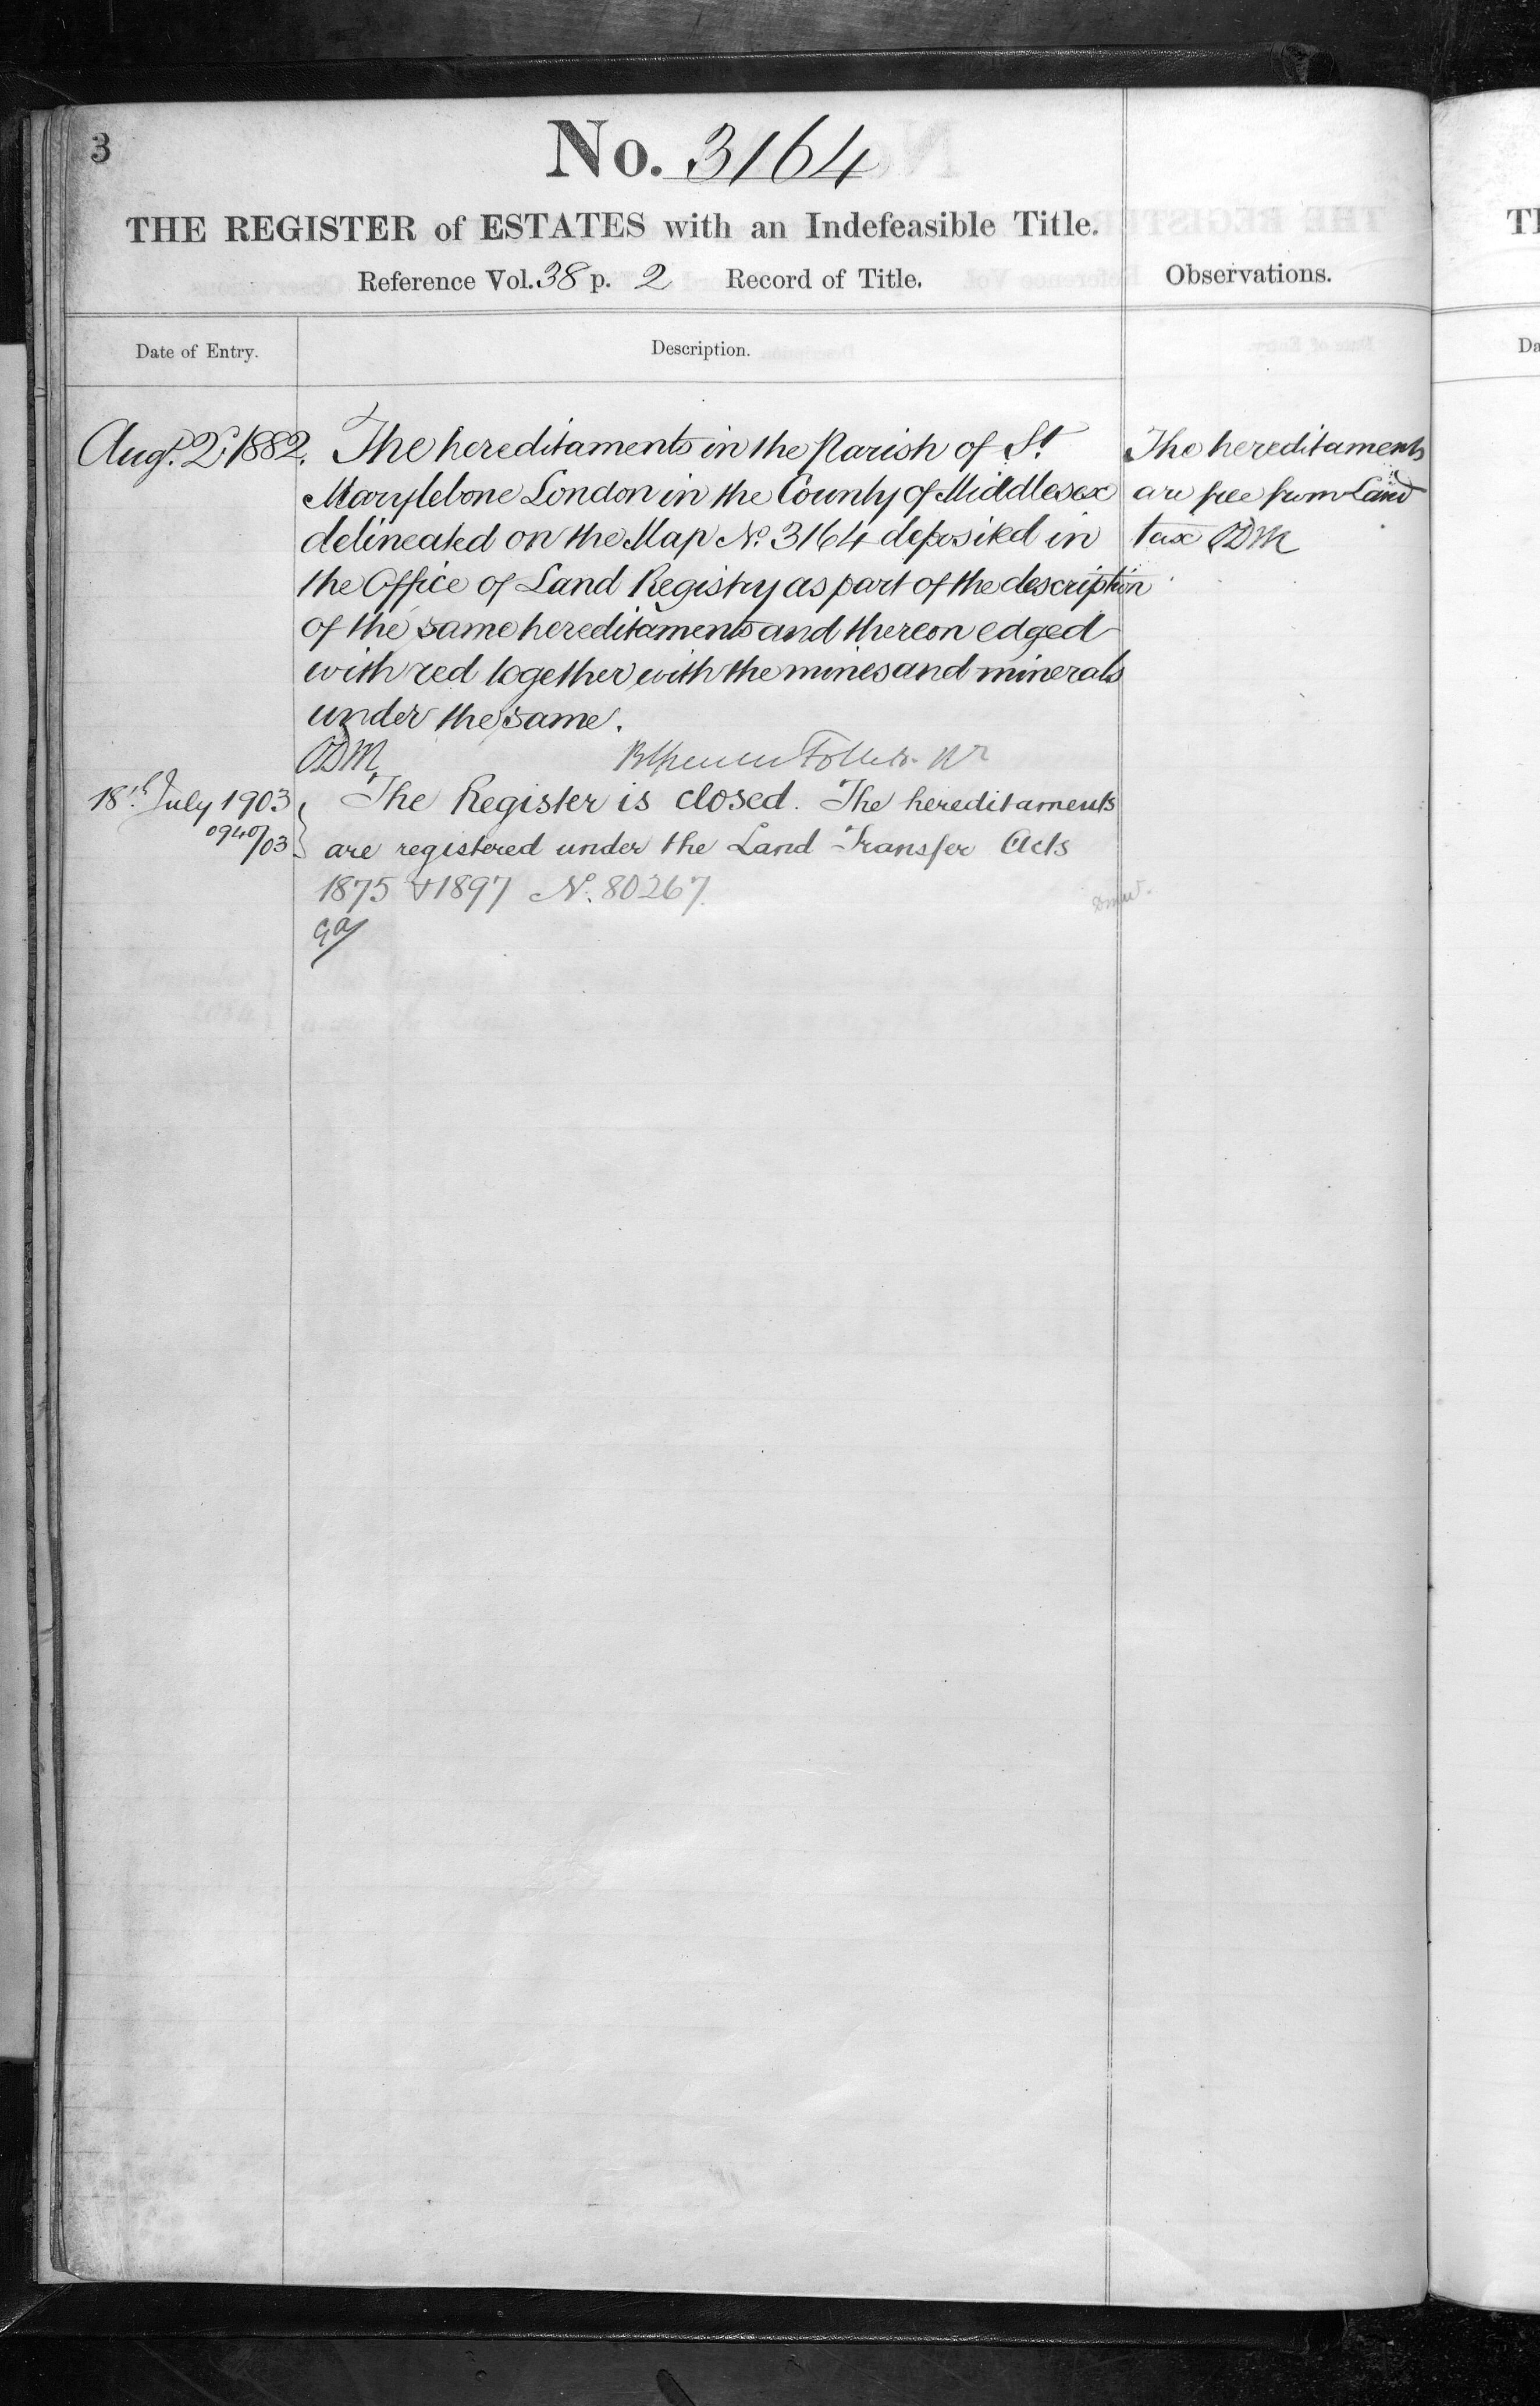 3
No. 3164
THE REGISTER of ESTATES with an Indefeasible Title.
Reference Vol. 38 p. 2 Record of Title.
Observations.
Date of Entry.
Description.
Aug. 2, 1882.
The hereditaments in the Parish of St
Marylebone London in the County of Middlesex
delineated on the Map No. 3164 deposited in
the Office of Land Registry as part of the description
of the same hereditaments and thereon edged
with red together with the mines and minerals
under the same.
The hereditaments
are free from Land
tax ODM
ODM
18th July 1903
0940/03
The Register is closed. The hereditaments
are registered under the Land Transfer Acts
1875 & 1897 No. 80267.